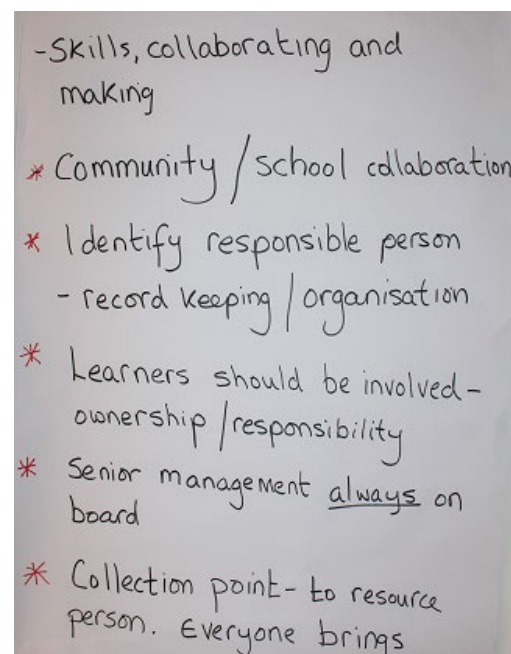 - Skills, collaborating and
making
* Community / school collaboration
* Identify responsible person
- record keeping / organisation
* Learners should be involved -
ownership / responsibility
* Senior management always on
board
* Collection point - to resource
person. Everyone brings